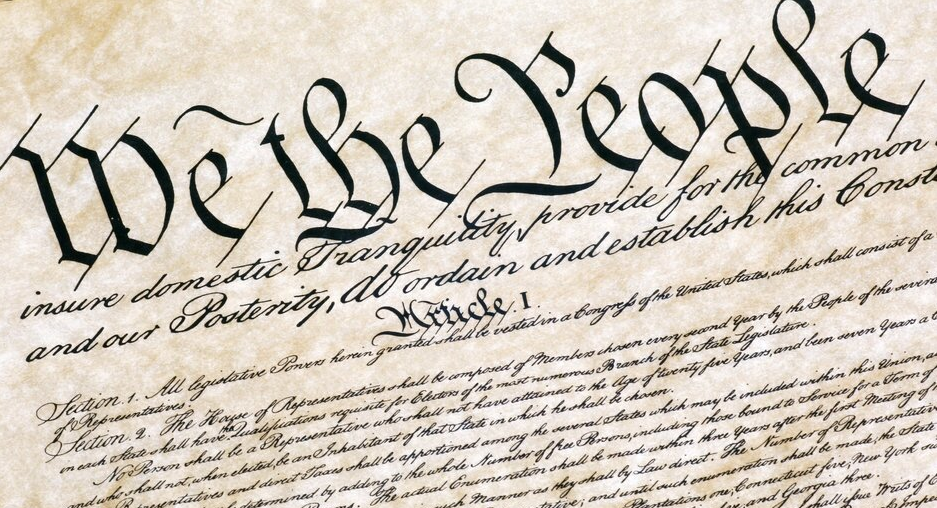 We the People
insure domestic Tranquility, provide for the common
and our Posterity, do ordain and establish this Const
Article. I.
Section. 1. All legislative Powers herein granted shall be vested in a Congress of the United States, which shall consist of a
of Representatives.
Section. 2. The House of Representatives shall be composed of Members chosen every second Year by the People of the several
in each State shall have the Qualifications requisite for Electors of the most numerous Branch of the State Legislature.
No Person shall be a Representative who shall not have attained to the Age of twenty five Years, and been seven Years a C
and who shall not, when elected, be an Inhabitant of that State in which he shall be chosen.
Representatives and direct Taxes shall be apportioned among the several States which may be included within this Union, a
determined by adding to the whole Number of free Persons, including those bound to Service for a Term of
The actual Enumeration shall be made within three Years after the first Meeting of
such Manner as they shall by Law direct. The Number of Representatives
and until such enumeration shall be made, the State
Plantations one, Connecticut five, New York six
five, and Georgia three.
shall issue Writs of